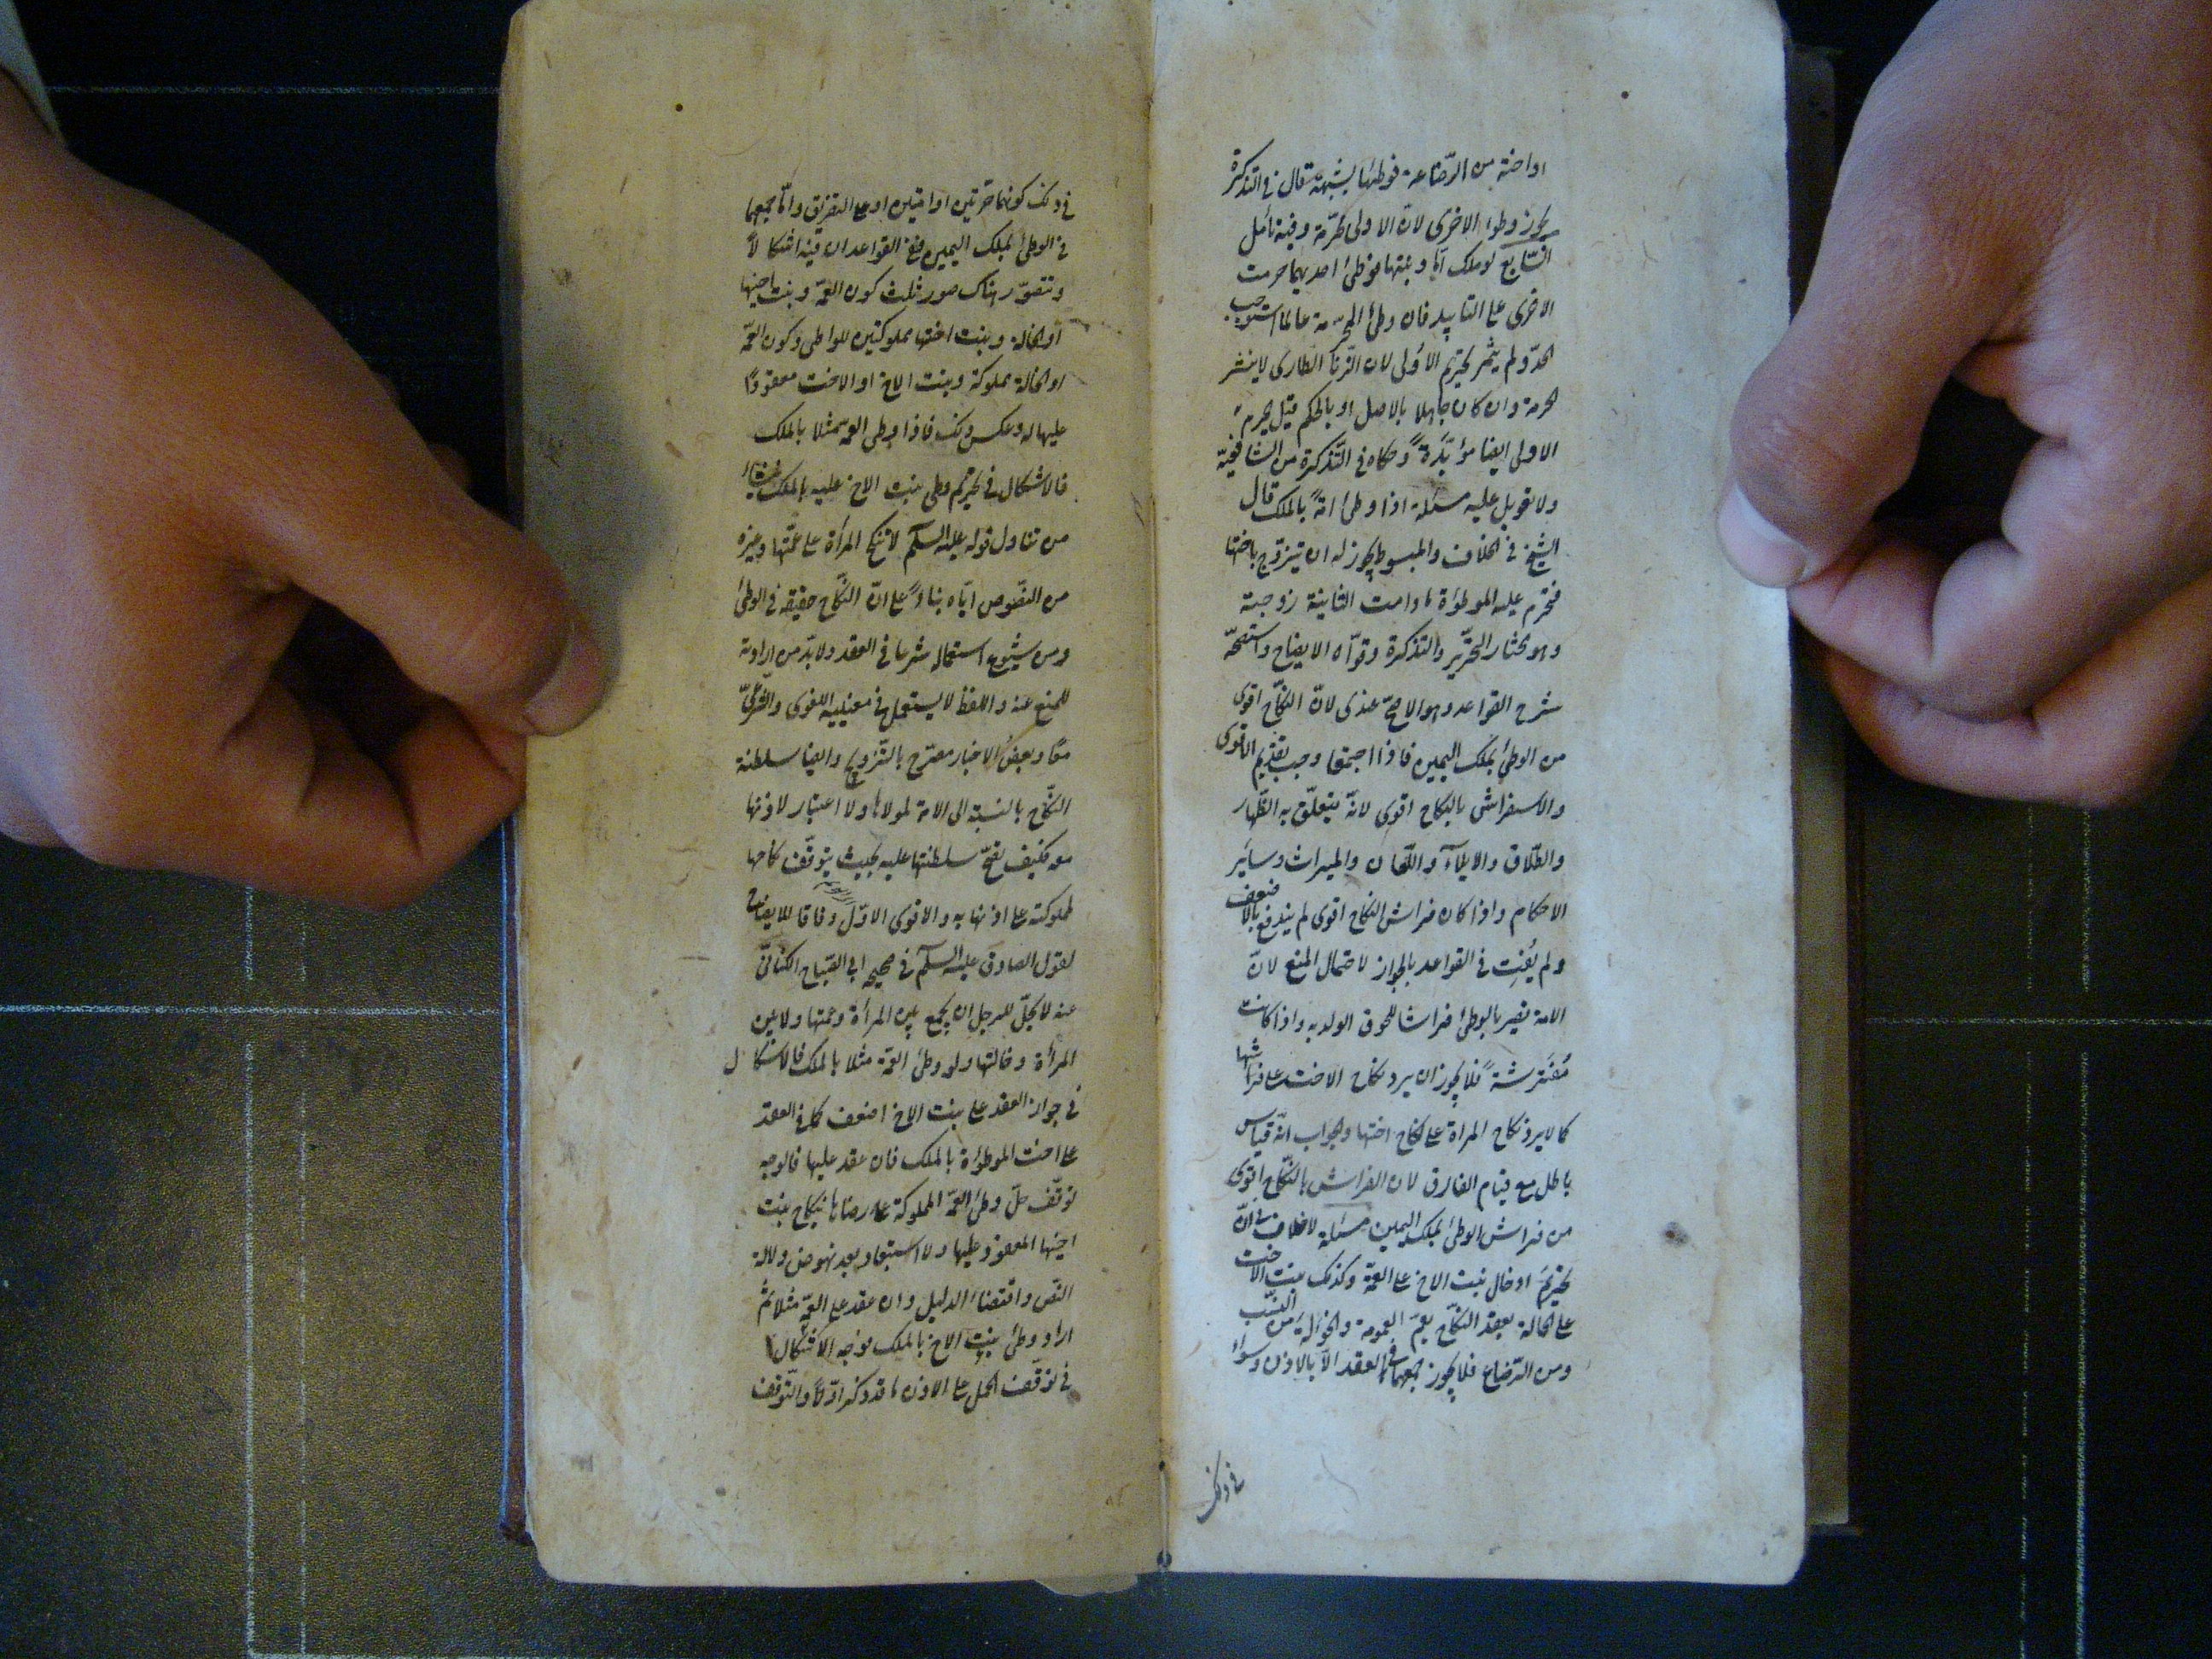 او اخته من الرّضاعة فوطئها بشبهة قال في التذكرة
يجوز وطؤ الاخرى لانّ الاولى محرّمة وفيه تأمل
السّابع لو ملك امّا وبنتها فوطئ احديهما حرمت
الاخرى على التابيد فان وطئ المحرّمة عالما استوجب
الحدّ ولم يثمر تحريم الاولى لان الزّنا الطارى لا ينشر
الحرمة وان كان جاهلا بالاصل او بالحكم قيل يحرم
الاولى ايضا مؤبّدةً وحكاه في التّذكرة من الشافعيّة
ولا تعويل عليه مسئلة اذا وطئ امةً بالملك قال
الشيخ في الخلاف والمبسوط يجوز له ان يتزوّج باختها
فتحرم عليه الموطوءة ما دامت الثانية زوجته
وهو مختار التحرير والتذكرة وقوّاه الايضاح واستصحّه
شرح القواعد وهو الاصحّ عندى لانّ النّكاح اقوى
من الوطئ بملك اليمين فاذا اجتمعا وجب تقديم الاقوى
والاستفراش بالنكاح اقوى لانّه يتعلّق به الظّهار
والطّلاق والايلاء واللّعان والميراث وساير
الاحكام واذا كان فراش النكاح اقوى لم يندفع بالاضعف
ولم يُفتِ في القواعد بالجواز لاحتمال المنع لانّ
الامة تصير بالوطئ فراشا للحوق الولد به واذا كانت
مُفتَرشةً فلا يجوز ان يرد نكاح الاخت على فراشها
كما لا يرد نكاح المراة على نكاح اختها والجواب انّه قياس
باطل مع قيام الفارق لان الفراش بالنّكاح اقوى
من فراش الوطئ بملك اليمين مسئلة لا خلاف في انّ
تحريم ادخال بنت الاخ على العمّة وكذلك بنت الاخت
على الخالة بعقد النّكاح يعمّ العمومة والخؤلة من النّسب
ومن الرّضاع فلا يجوز جمعهما في العقد الّا بالاذن وسواء
في ذلك
في ذلك كونهما حرّتين او امتين او على التفريق وامّا جمعهما
في الوطئ بملك اليمين ففي القواعد ان فيه اشكالاً
وتتصوّر هناك صور ثلث كون العمّة وبنت اخيها
او الخالة وبنت اختها مملوكتين للواطى وكون العمّة
او الخالة مملوكة وبنت الاخ او الاخت معقودًا
عليها له وعكس ذلك فاذا وطى العمة مثلا بالملك
فالاشكال في تحريم وطى بنت الاخ عليه بالملك
من تناول قوله عليه السلام لا تنكح المرأة على عمّتها وغيره
من النّصوص ايّاه بناءً على انّ النّكاح حقيقه في الوطئ
ومن شيوع استعماله شرعا في العقد ولا بدّ من ارادته
للمنع عنه واللفظ لا يستعمل في معنييه اللغوى والشّرعىّ
معًا وبعضُ الاخبار مصرّح بالتّزويج وايضا سلطنة
النّكاح بالنسبة الى الامة لمولاها ولا اعتبار لاذنها
معه فكيف يصحّ سلطنتها عليه بحيث يتوقّف نكاحها
لمملوكته على اذنها به والاقوى الاوّل وفاقا للايضاح
لقول الصادق عليه السلام في صحيح ابى الصّباح الكنانىّ
عنه لا يحلّ للرجل ان يجمع بين المرأة وعمتها ولا بين
المرأة وخالتها ولو وطئ العمّة مثلا بالملك فالاشكال
في جواز العقد على بنت الاخ اضعف كما في العقد
على اخت الموطوءة بالملك فان عقد عليها فالوجه
توقّف حلّ وطئ العمّة المملوكة على رضاها بنكاح بنت
اخيها المعقود عليها ولا استبعاد بعد نهوض دلالة
النّص واقتضاء الدليل وان عقد على العمّة مثلا ثمّ
اراد وطئ بنت الاخ بالملك فوجه الاشكال
في توقّف الحل على الاذن ما قد ذكر اوّلاً والتّوقف